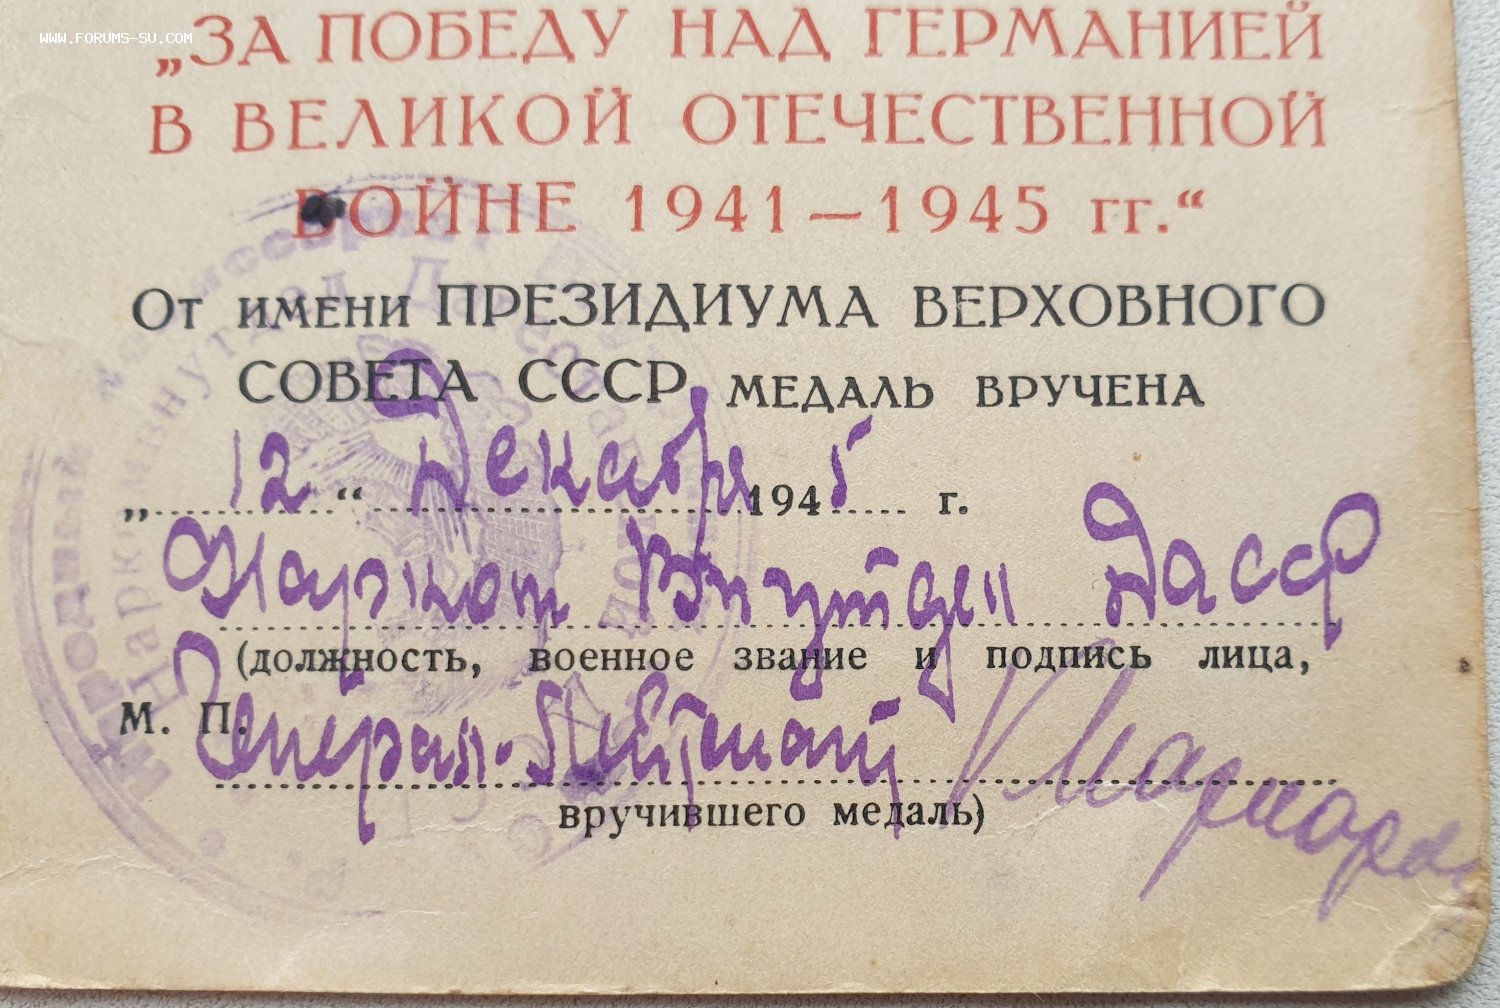 WWW.FORUMS-SU.COM
„ЗА ПОБЕДУ НАД ГЕРМАНИЕЙ
В ВЕЛИКОЙ ОТЕЧЕСТВЕННОЙ
ВОЙНЕ 1941—1945 гг.“
От имени ПРЕЗИДИУМА ВЕРХОВНОГО
СОВЕТА СССР медаль вручена
„12“ Декабря 1945 г.
Нарком Внутдел ДАССР
(должность, военное звание и подпись лица,
М. П. Генерал-Лейтенант
вручившего медаль)